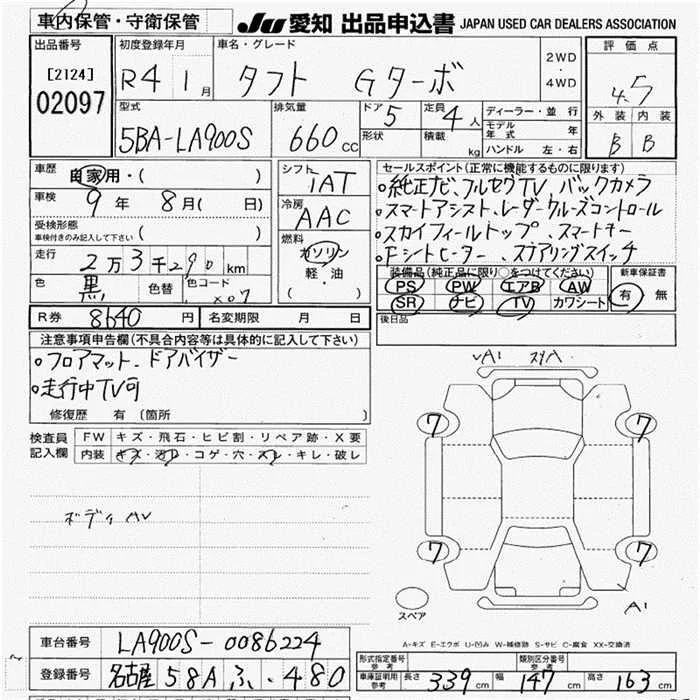 車内保管・守衛保管 JU 愛知 出品申込書 JAPAN USED CAR DEALERS ASSOCIATION
出品番号 初度登録年月 車名・グレード 評価点
[2124] R4 1月 タフト Gターボ 2WD・4WD 4.5
02097 型式 排気量 ドア 5 定員 4人 ディーラー・並行 外装 内装
5BA-LA900S 660cc 形状 積載 kg モデル年式 年 B B
ハンドル 左・右
車歴 自家用・( ) シフト IAT セールスポイント(正常に機能するものに限ります)
車検 9年 8月( 日) 冷房 AAC 。純正ナビ、フルセグTV、バックカメラ
受検形態 ( ) 。スマートアシスト、レーダークルーズコントロール
車検付きのみ記入して下さい 燃料 ガソリン 。スカイフィールトップ、スマートキー
走行 2万3千290km 軽・油 。Fシートヒーター、ステアリングスイッチ
色 黒 色替 色コード X07 ( ) 装備品(純正品に限り○をつけてください) 新車保証書
PS PW エアB AW 有 無
SR ナビ TV カワシート
R券 8640円 名変期限 月 日 後日品
注意事項申告欄(不具合内容等は具体的に記入して下さい)
。フロアマット、ドアバイザー
。走行中TV可
修復歴 有 (箇所 )
検査員記入欄 FW キズ・飛石・ヒビ割・リペア跡・X要
内装 キズ・汚レ・コゲ・穴・スレ・キレ・破レ
A1
7 7
ボディ
7 7
スペア A1
A-キズ E-エクボ U-凹み W-補修跡 S-サビ C-腐食 XX-交換済
車台番号 LA900S-0086224
登録番号 名古屋 58A ふ・480
形式指定番号 参考 類別区分番号 参考
車庫証明用 参考 長さ 339cm 幅 147cm 高さ 163cm